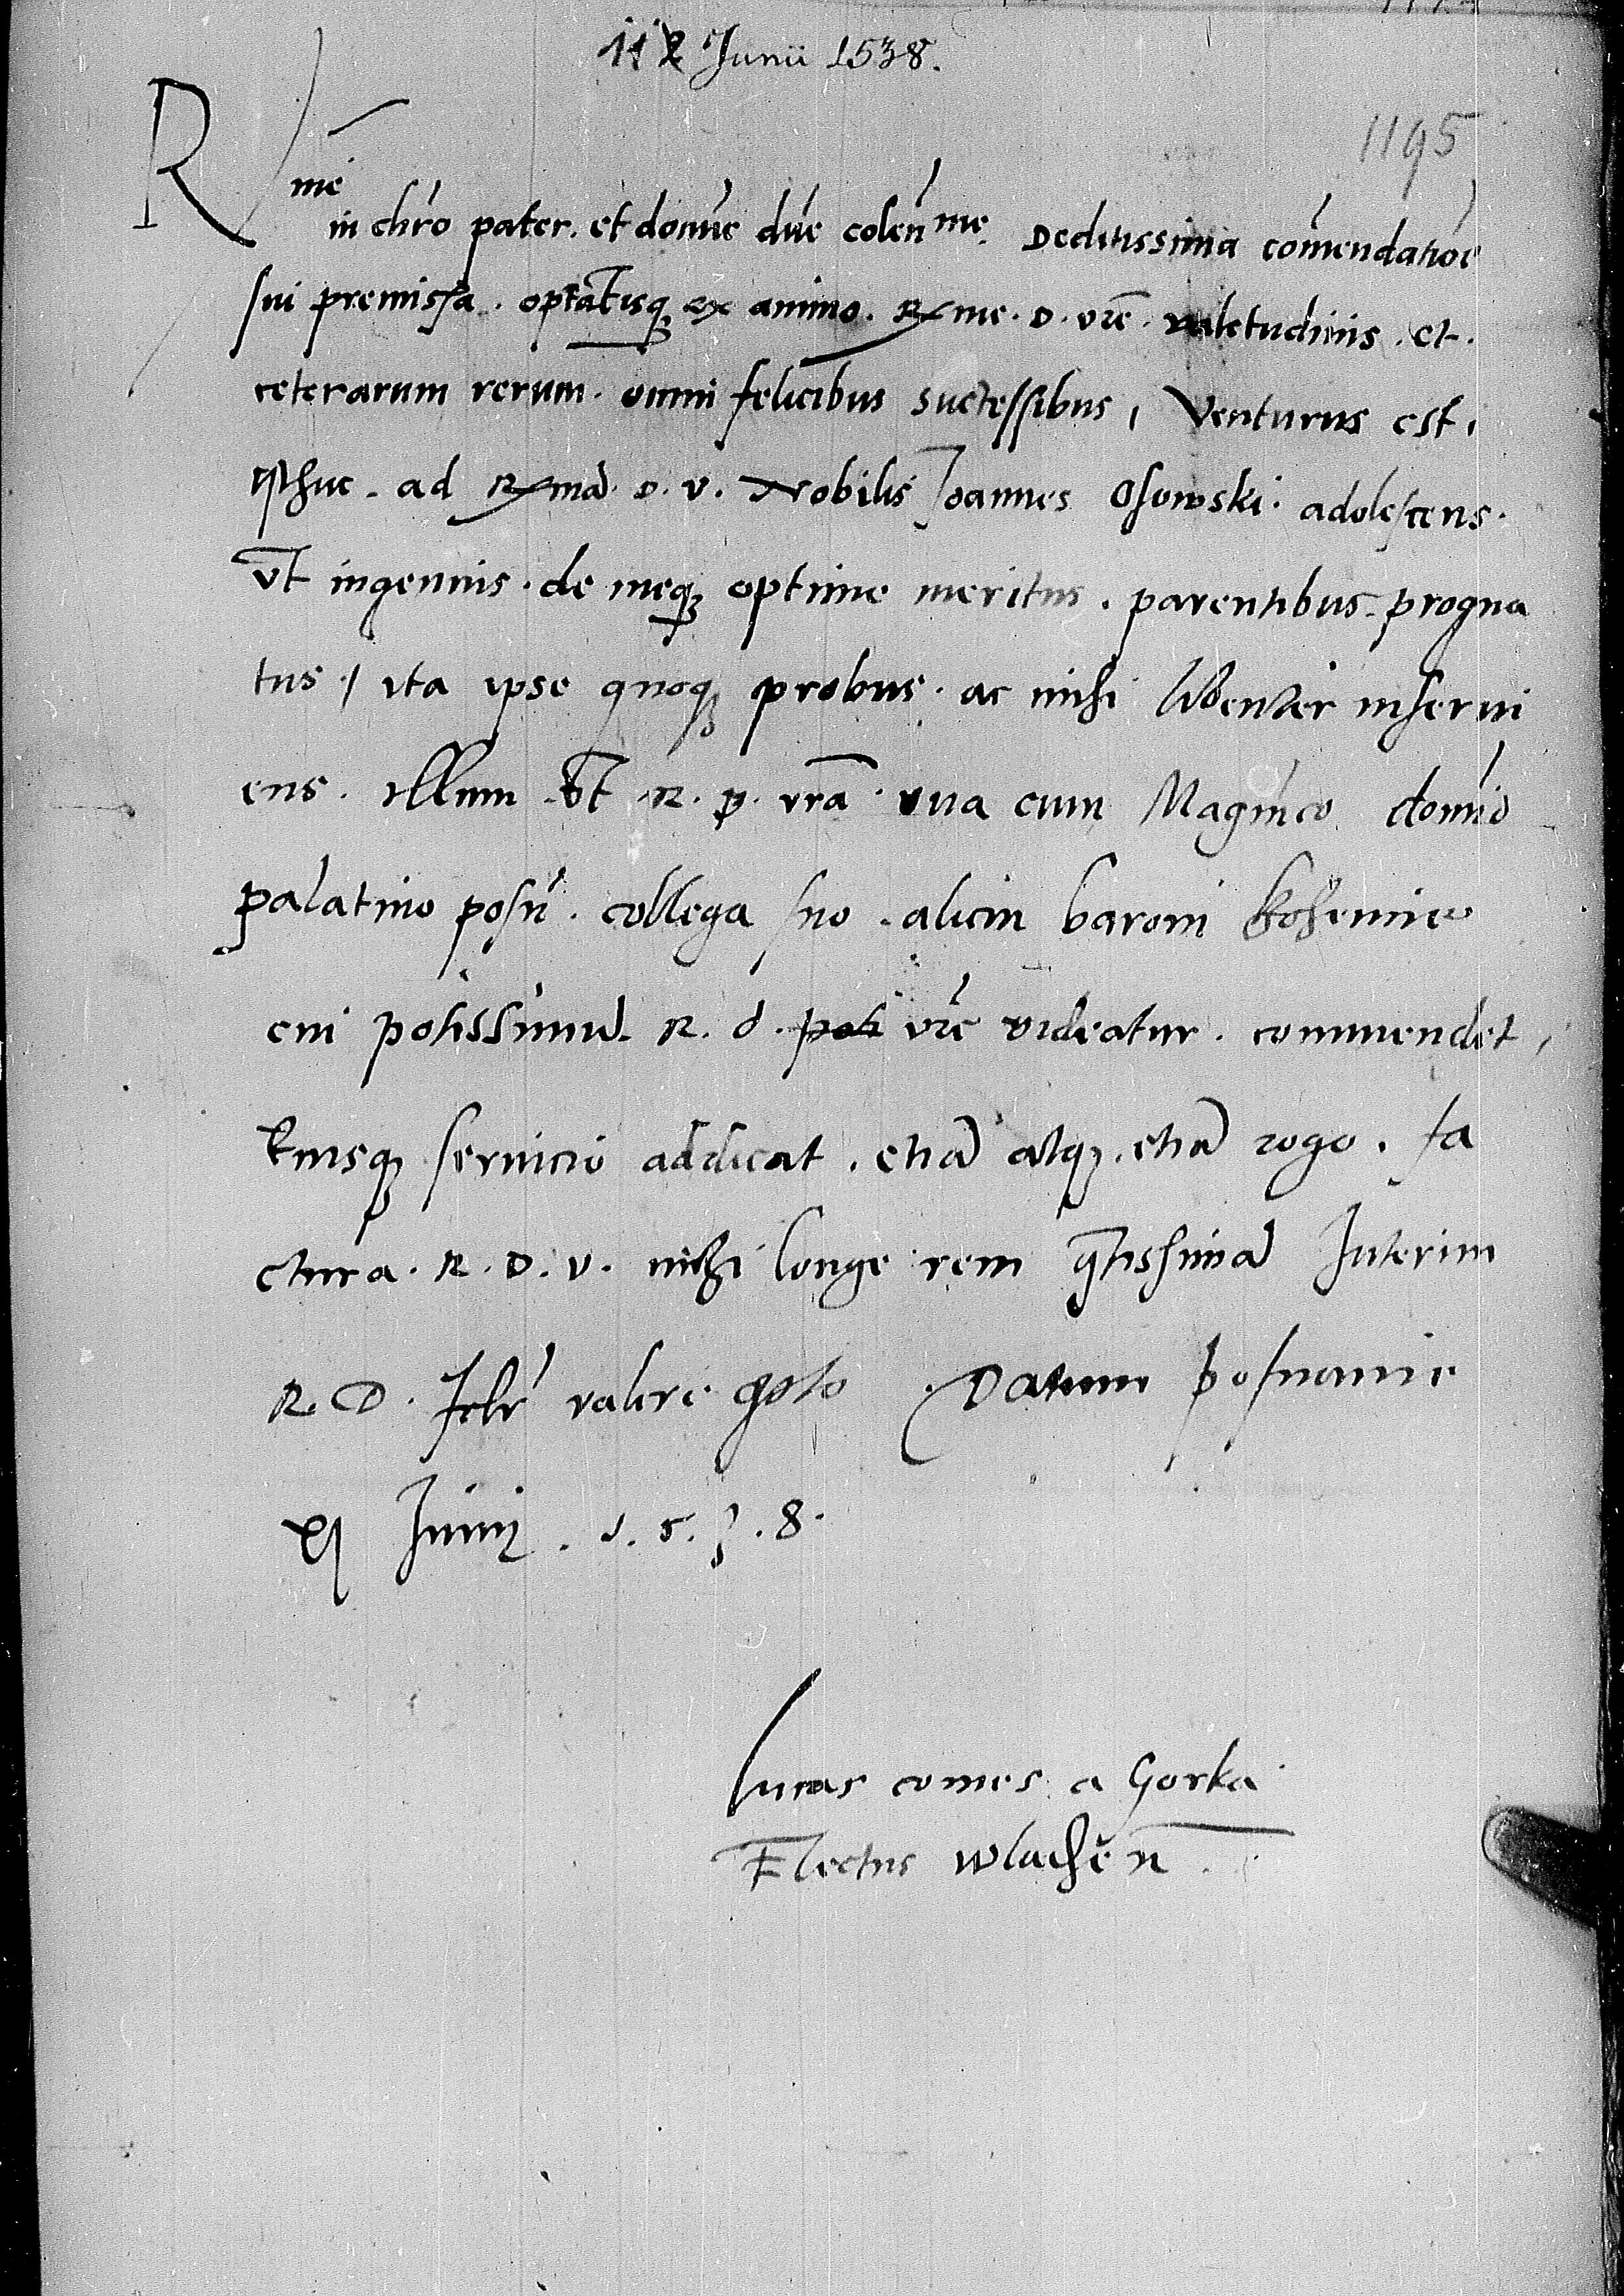 11 Junii 1538.
1195
Rme
in chro pater. et domie dne colenme. Deditissima comendatioe
sui premissa. optatisq ex animo. Rme. D. vre. valetudinis. et.
ceterarum rerum. omni felicibus successibus, Venturus est,
isthuc. ad Rma. D. V. Nobilis Joannes Osowski. adolescens.
Vt ingenuis. de meq optime meritus. parentibus. progna
tus / ita ipse quoq probus. ac mihi libenter inserui
ens. illum Vt. R. p. vra. vna cum Maginco domio
palatino posn. collega suo. alicui baroni bohemie
cui potissimu. R. d. vre videatur. commendet,
Eiusq seruicio addicat. etia atq. etia rogo. fa
ctura. R. D. V. mihi longe rem gtissima Interim
R. D. felr valere opto Datum posnanie
xj Junij. 1. 5. 3. 8.
Lucas comes a Gorka
Electus wladien